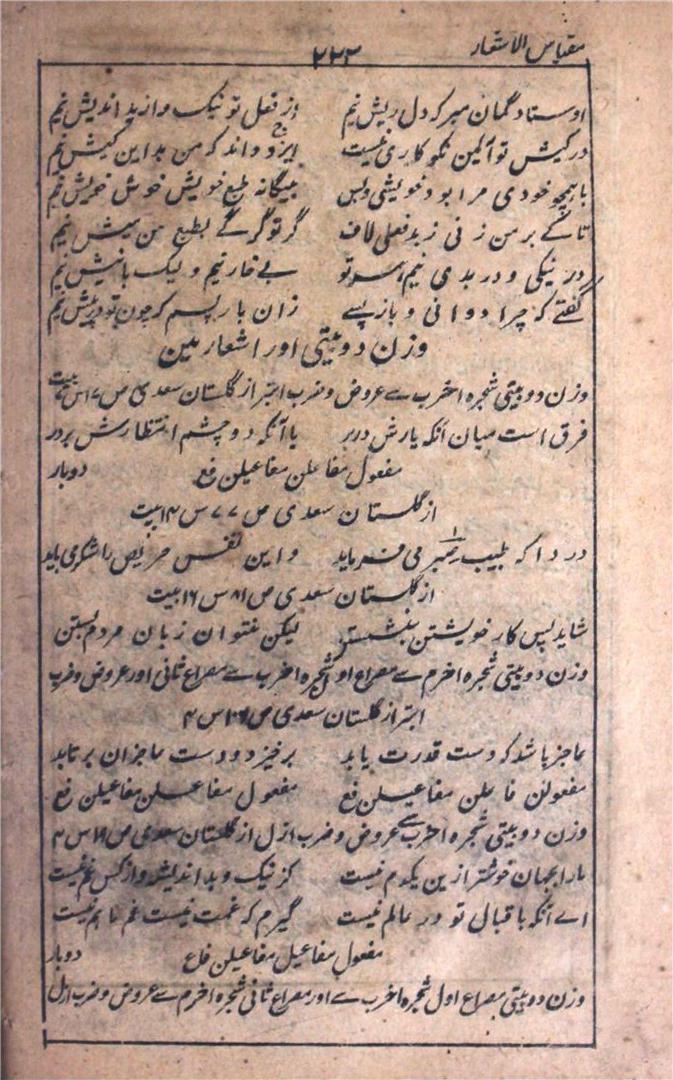 مقیاس الاشعار
۲۲۳
اوستاد گمان مبر کہ دل ریش نیم وز فعل تو نیک و از بد اندیش نیم
در کیش تو آئین نکوکاری نیست ایزد داند کہ من بداین کیش نیم
با ہیچو خودی مرا بود خویشی و بس بیگانہ طبع خویش خوش خویش نیم
تا کے بر من زنی زبد فعلی لاف گر تو گرگے بطبع من میش نیم
در نیکی و در بدی نیم تو بے خار نیم ولیک بانیش نیم
گفتے کہ چرا دوانی و باز پسے زان باز پسم کہ چون تو درپیش نیم
وزن دوبیتی اور اشعار مین
وزن دوبیتی شجرہ اخرب سے عروض و ضرب ابتر از گلستان سعدی ص ۷ بیت
فرق است میان آنکہ یارش دربر با آنکہ دو چشم انتظارش بردر
مفعول مفاعلن مفاعیلن فع دوبار
از گلستان سعدی ص ۷۷ س ۱۴ بیت
دردا کہ طبیب صبر می فرماید و این نفس حریص را شکر می باید
از گلستان سعدی ص ۸۱ س ۱۶ بیت
شاید پس کار خویشتن بنشستن لیکن نتوان زبان مردم بستن
وزن دوبیتی شجرہ اخرم سے مصراع اول شجرہ اخرب سے مصراع ثانی اور عروض و ضرب
ابتر از گلستان سعدی ص س ۴
عاجز باشد کہ دست قدرت یابد برخیزد و دست عاجزان برتابد
مفعولن فاعلن مفاعیلن فع مفعول مفاعلن مفاعیلن فع
وزن دوبیتی شجرہ اخرب سے عروض و ضرب ازل از گلستان سعدی ص ۱۹ س ۴
مارا بجہان خوشتر ازین یکدم نیست کز نیک و بد اندیشہ و از کس غم نیست
اے آنکہ باقبال تو در عالم نیست گیرم کہ غمت نیست غم ما ہم نیست
مفعول مفاعیل مفاعیلن فاع دوبار
وزن دوبیتی مصراع اول شجرہ اخرب سے اور مصراع ثانی شجرہ اخرم سے عروض و ضرب ازل